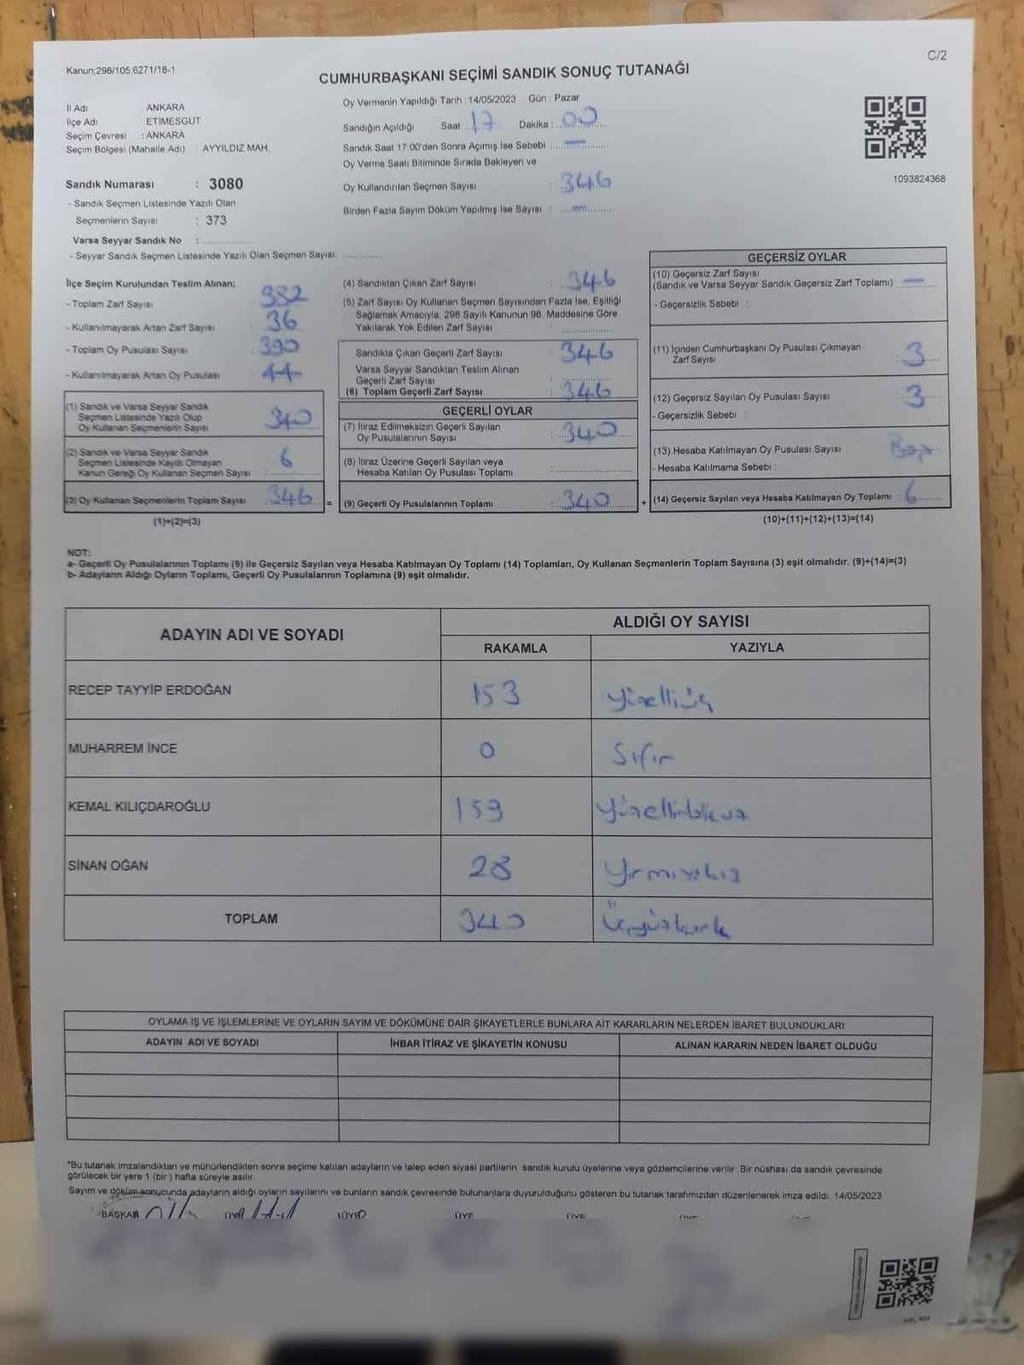 Kanun;298/105,6271/18-1
C/2
CUMHURBAŞKANI SEÇİMİ SANDIK SONUÇ TUTANAĞI
İl Adı ANKARA
İlçe Adı ETİMESGUT
Seçim Çevresi : ANKARA
Seçim Bölgesi (Mahalle Adı) : AYYILDIZ MAH.
Sandık Numarası : 3080
- Sandık Seçmen Listesinde Yazılı Olan
Seçmenlerin Sayısı : 373
Varsa Seyyar Sandık No :
- Seyyar Sandık Seçmen Listesinde Yazılı Olan Seçmen Sayısı:
Oy Vermenin Yapıldığı Tarih :14/05/2023 Gün : Pazar
Sandığın Açıldığı Saat : 17 Dakika : 00
Sandık Saat 17:00'den Sonra Açımış İse Sebebi : —
Oy Verme Saati Bitiminde Sırada Bekleyen ve
Oy Kullandırılan Seçmen Sayısı : 346
Birden Fazla Sayım Döküm Yapılmış İse Sayısı : —
1093824368
İlçe Seçim Kurulundan Teslim Alınan;
- Toplam Zarf Sayısı : 382
- Kullanılmayarak Artan Zarf Sayısı : 36
- Toplam Oy Pusulası Sayısı : 390
- Kullanılmayarak Artan Oy Pusulası : 44
(1) Sandık ve Varsa Seyyar Sandık
Seçmen Listesinde Yazılı Olup
Oy Kullanan Seçmenlerin Sayısı : 340
(2) Sandık ve Varsa Seyyar Sandık
Seçmen Listesinde Kayıtlı Olmayan
Kanun Gereği Oy Kullanan Seçmen Sayısı : 6
(3) Oy Kullanan Seçmenlerin Toplam Sayısı : 346 =
(1)+(2)=(3)
(4) Sandıktan Çıkan Zarf Sayısı : 346
(5) Zarf Sayısı Oy Kullanan Seçmen Sayısından Fazla İse, Eşitliği
Sağlamak Amacıyla; 298 Sayılı Kanunun 98. Maddesine Göre
Yakılarak Yok Edilen Zarf Sayısı
Sandıkta Çıkan Geçerli Zarf Sayısı : 346
Varsa Seyyar Sandıktan Teslim Alınan
Geçerli Zarf Sayısı
(6) Toplam Geçerli Zarf Sayısı : 346
GEÇERLİ OYLAR
(7) İtiraz Edilmeksizin Geçerli Sayılan
Oy Pusulalarının Sayısı : 340
(8) İtiraz Üzerine Geçerli Sayılan veya
Hesaba Katılan Oy Pusulası Toplamı
(9) Geçerli Oy Pusulalarının Toplamı : 340 +
GEÇERSİZ OYLAR
(10) Geçersiz Zarf Sayısı
(Sandık ve Varsa Seyyar Sandık Geçersiz Zarf Toplamı) : —
- Geçersizlik Sebebi :
(11) İçinden Cumhurbaşkanı Oy Pusulası Çıkmayan
Zarf Sayısı : 3
(12) Geçersiz Sayılan Oy Pusulası Sayısı : 3
- Geçersizlik Sebebi :
(13) Hesaba Katılmayan Oy Pusulası Sayısı
- Hesaba Katılmama Sebebi :
(14) Geçersiz Sayılan veya Hesaba Katılmayan Oy Toplamı : 6
(10)+(11)+(12)+(13)=(14)
NOT:
a- Geçerli Oy Pusulalarının Toplamı (9) ile Geçersiz Sayılan veya Hesaba Katılmayan Oy Toplamı (14) Toplamları, Oy Kullanan Seçmenlerin Toplam Sayısına (3) eşit olmalıdır. (9)+(14)=(3)
b- Adayların Aldığı Oyların Toplamı, Geçerli Oy Pusulalarının Toplamına (9) eşit olmalıdır.
ADAYIN ADI VE SOYADI ALDIĞI OY SAYISI
RAKAMLA YAZIYLA
RECEP TAYYİP ERDOĞAN 153 Yüzelliüç
MUHARREM İNCE 0 Sıfır
KEMAL KILIÇDAROĞLU 159 Yüzellidokuz
SİNAN OĞAN 28 Yirmisekiz
TOPLAM 340 Üçyüzkırk
OYLAMA İŞ VE İŞLEMLERİNE VE OYLARIN SAYIM VE DÖKÜMÜNE DAİR ŞİKAYETLERLE BUNLARA AİT KARARLARIN NELERDEN İBARET BULUNDUKLARI
ADAYIN ADI VE SOYADI İHBAR İTİRAZ VE ŞİKAYETİN KONUSU ALINAN KARARIN NEDEN İBARET OLDUĞU
*Bu tutanak imzalandıktan ve mühürlendikten sonra seçime katılan adayların ve talep eden siyasi partilerin sandık kurulu üyelerine veya gözlemcilerine verilir. Bir nüshası da sandık çevresinde
görülecek bir yere 1 (bir ) hafta süreyle asılır.
Sayım ve döküm sonucunda adayların aldığı oyların sayılarını ve bunların sandık çevresinde bulunanlara duyurulduğunu gösteren bu tutanak tarafımızdan düzenlenerek imza edildi. 14/05/2023
BAŞKAN ÜYE ÜYE ÜYE ÜYE